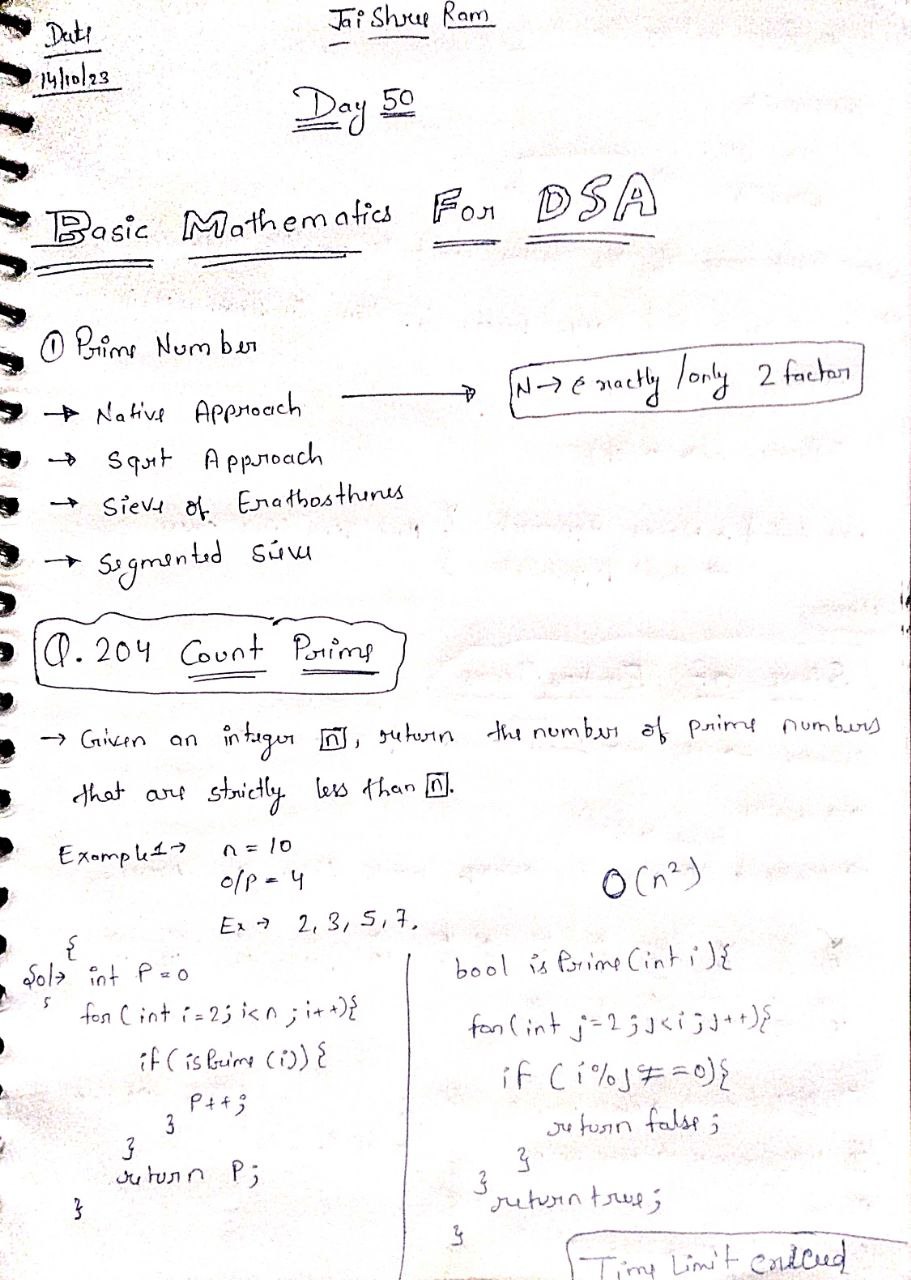 Jai Shree Ram
Date
14/10/23
Day 50
Basic Mathematics For DSA
① Prime Number
→ Native Approach → N → exactly /only 2 factor
→ Sqrt Approach
→ Sieve of Erathosthenes
→ Segmented Sieve
Q. 204 Count Prime
→ Given an integer n, return the number of prime numbers
that are strictly less than n.
Example1→ n = 10
O/P = 4
Ex → 2, 3, 5, 7.
O(n²)
{
Sol→ int P = 0
for (int i = 2; i<n ; i++){
if (isPrime (i)) {
P++;
}
}
return P;
}
bool isPrime (int i){
for (int j = 2 ; j<i ; j++){
if (i%j ==0){
return false ;
}
}
return true ;
}
Time Limit